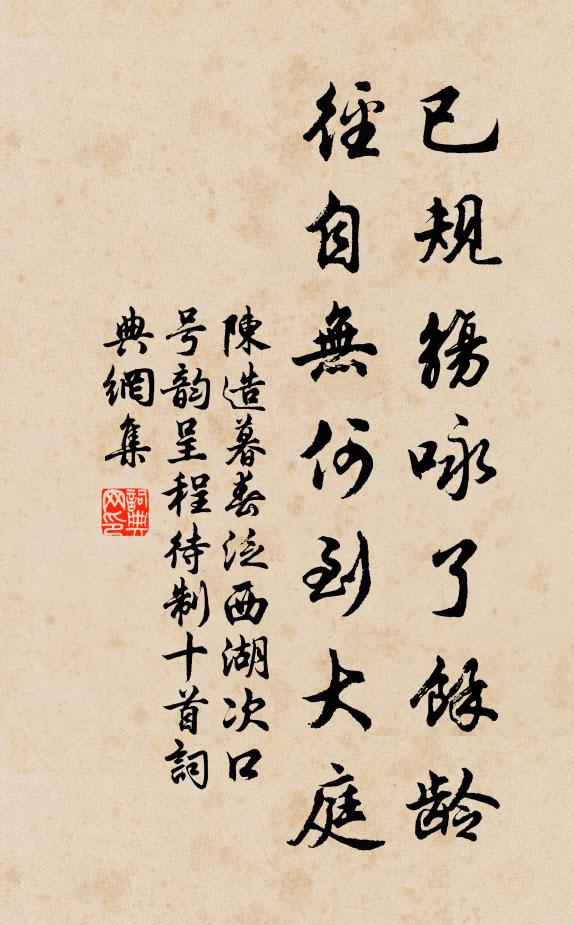 已規觴咏了餘龄
徑自無何到大庭
陳造暮春泛西湖次口
号韵呈程待制十首詞
典網集
詞典网印